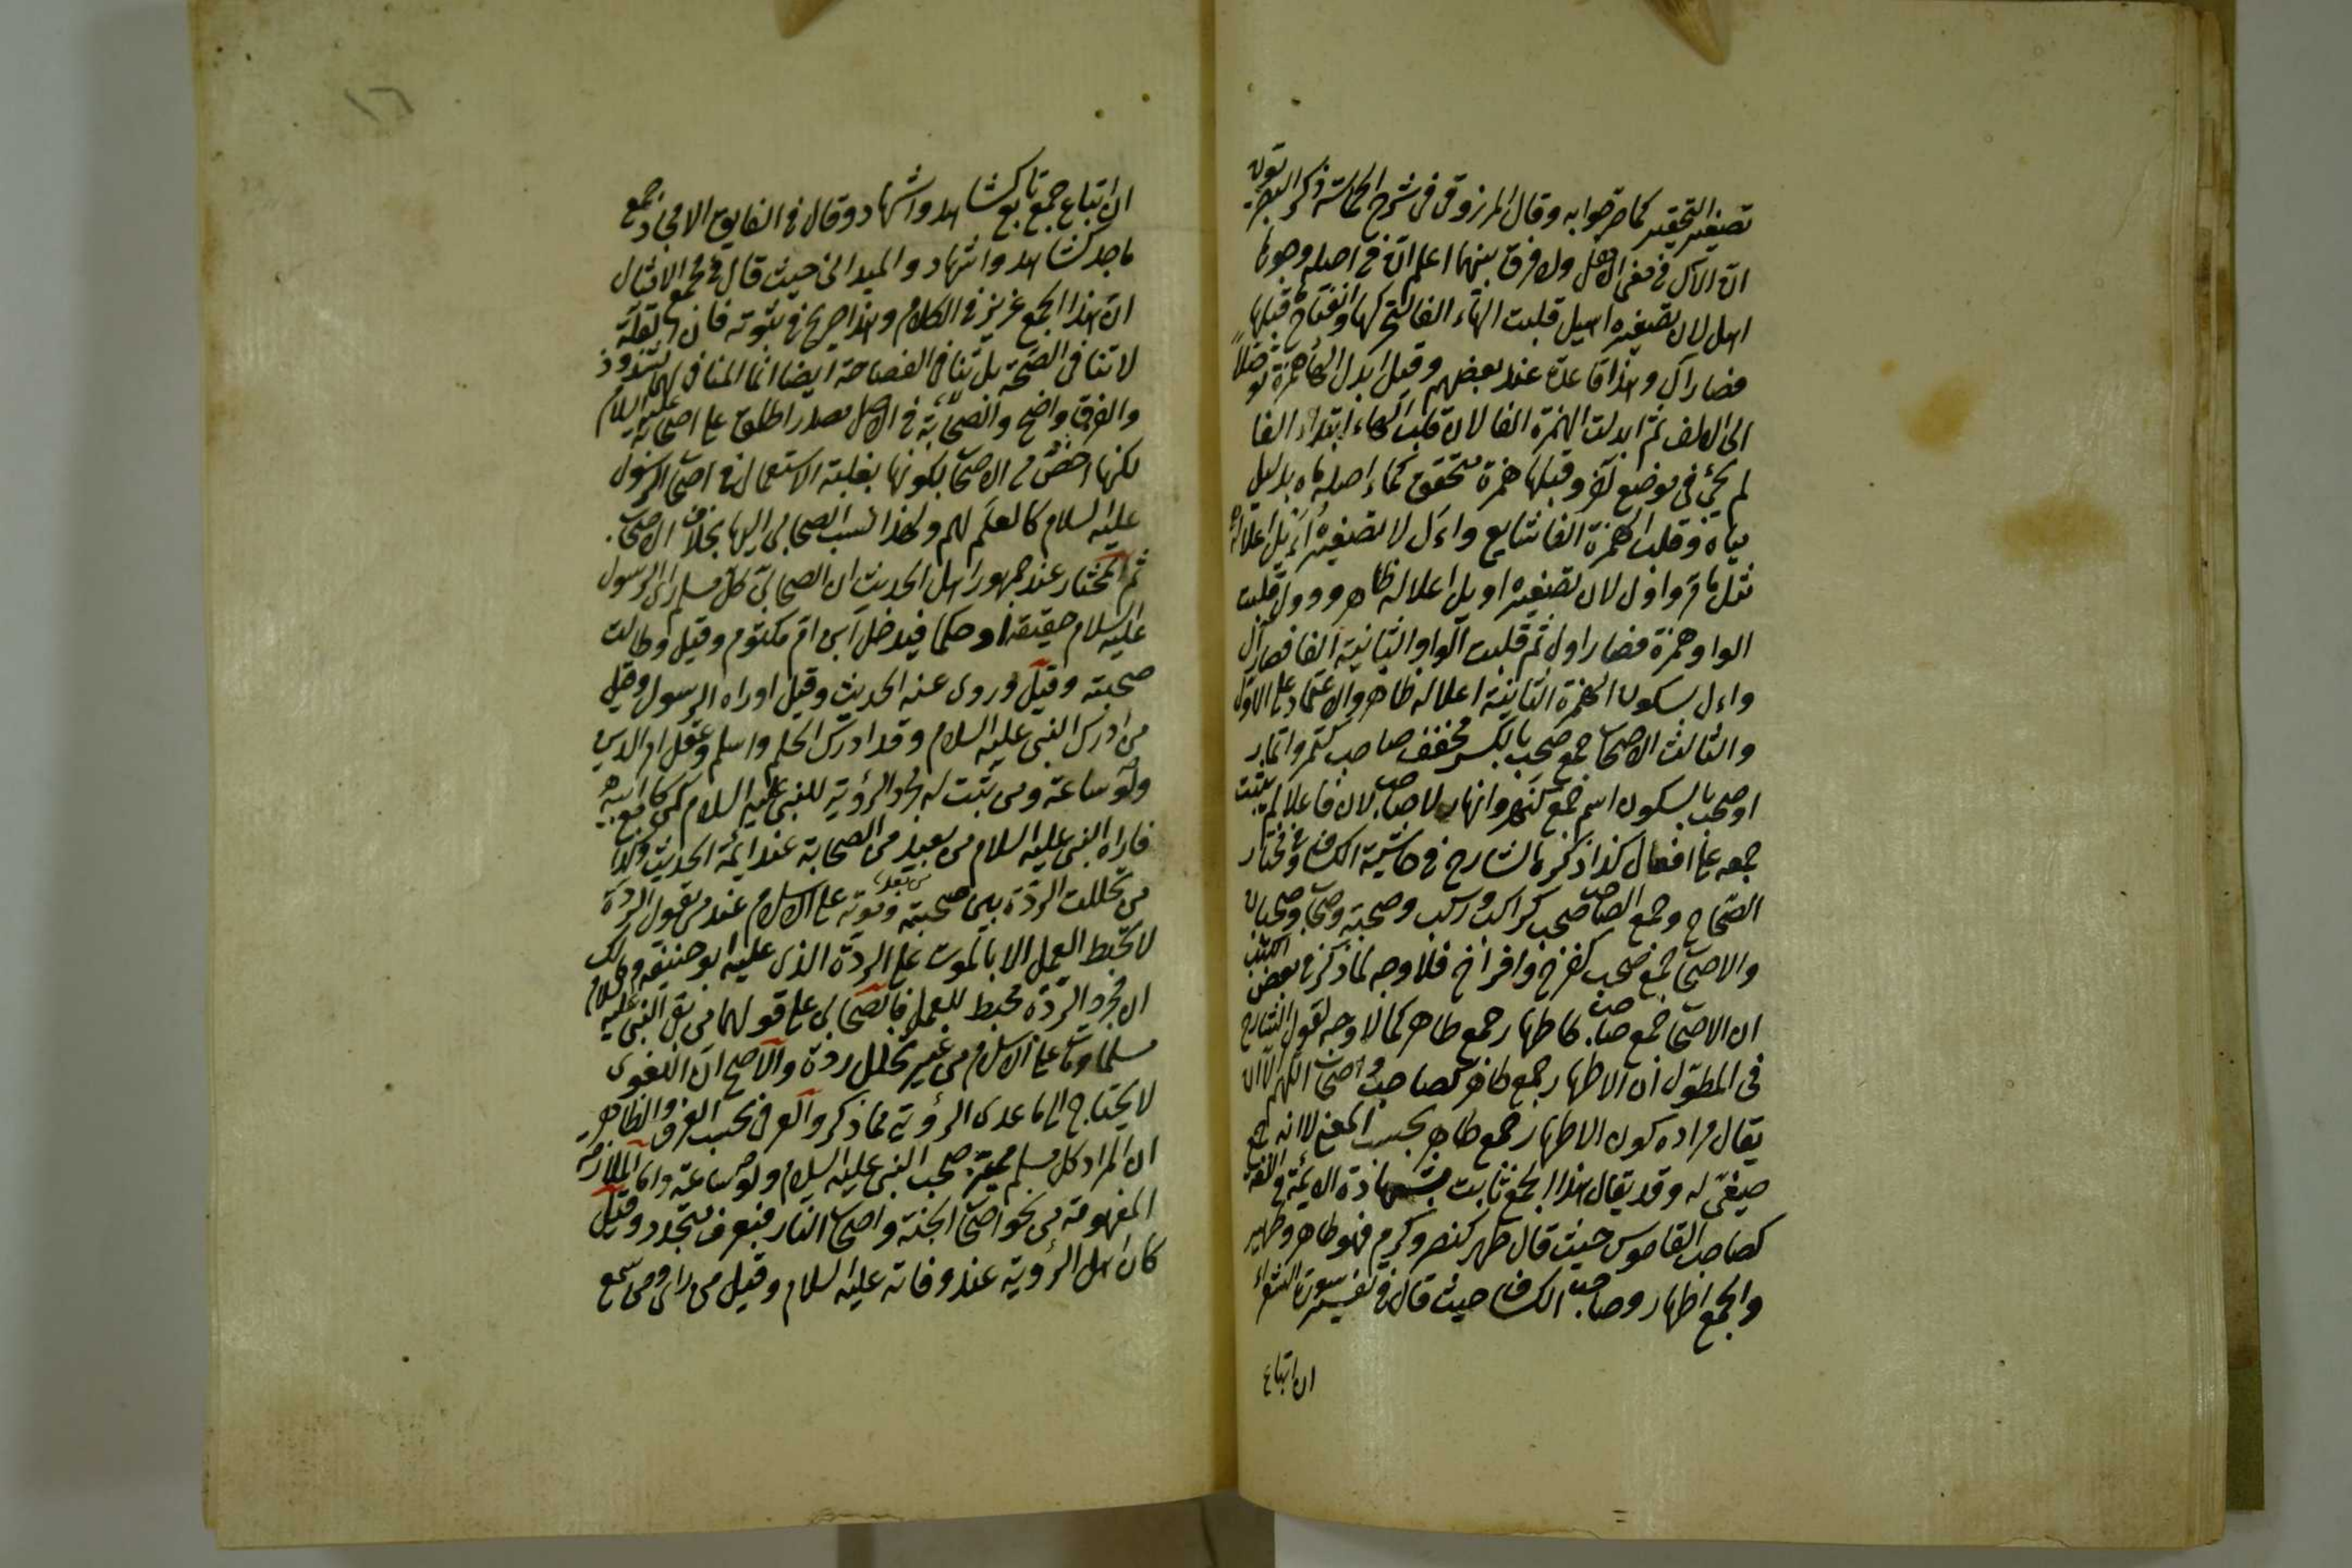 تصغير التحقير كما صرحوا به وقال المرزوقى فى شرح الحماسة ذكر البصريون
ان الآل فى معنى الاهل ولا فرق بينهما اعلم ان فى اصله وجوها
اهل لان تصغيره اهيل قلبت الهاء الفا لتحركها وانفتاح ما قبلها
فصار آل وهذا قاعدة عند بعضهم وقيل ابدل الهاء همزة توصلا
الى الالف ثم ابدلت الهمزة الفا لان قلب الهاء ابتداء الفا
لم يجئ فى موضع آخر وقلبها همزة متحقق كماء اصله ماه بدليل
مياه وقلب الهمزة الفا شايع واءل لان تصغيره اءيل اعلاله
مثل ما مر واول لان تصغيره اويل اعلاله ظاهر وول قلبت
الواو همزة فصار اول ثم قلبت الواو الثانية الفا فصار آل
واءل بسكون الهمزة الثانية اعلاله ظاهر والاعتماد على الاول
والثالث الاصحاب جمع صحب بالكسر مخفف صاحب كنمر وانمار
او صحب بالسكون اسم جمع كنهر وانهار لا صاحب لان فاعلا لم يثبت
جمعه على افعال كذا ذكره الشارح فى حاشية الكشاف وفى مختار
الصحاح وجمع الصاحب صحب كراكب وركب وصحبة وصحاب وصحبان
والاصحاب جمع صحب كفرخ وافراخ فلا وجه لما ذكر فى بعض الكتب
ان الاصحاب جمع صاحب كاطهار جمع طاهر كما لا وجه لقول الشارح
فى المطول ان الاطهار جمع طاهر كصاحب واصحاب اللهم الا ان
يقال مراده كون الاطهار جمع طاهر بحسب المعنى لا انه جمع
صيغى له وقد يقال هذا الجمع ثابت بشهادة الائمة فى اللغة
كصاحب القاموس حيث قال طهر كنصر وكرم فهو طاهر وطهير
والجمع اطهار وصاحب الكشاف حيث قال فى تفسير سورة الشعراء
ان اتباع
١٦
ان اتباع جمع تابع كشاهد واشهاد وقال فى الفايق الامجاد جمع
ماجد كشاهد واشهاد والميدانى حيث قال فى مجمع الامثال
ان هذا الجمع عزيز فى الكلام وهذا صريح فى ثبوته فان القلة
لا تنافى الصحة بل تنافى الفصاحة ايضا انما المنافى لهما الشذوذ
والفرق واضح والصحابة فى الاصل مصدر اطلق على اصحابه عليه السلام
لكنها اخص من الاصحاب لكونها بغلبة الاستعمال فى اصحاب الرسول
عليه السلام كالعلم لهم ولهذا نسب الصحابى اليها بخلاف الاصحاب
ثم المختار عند جمهور اهل الحديث ان الصحابى كل مسلم راى الرسول
عليه السلام حقيقة او حكما فيدخل ابن ام مكتوم وقيل وطالت
صحبته وقيل وروى عنه الحديث وقيل او راه الرسول وقيل
من ادرك النبى عليه السلام وقد ادرك الحلم واسلم وعقل امر الدين
ولو ساعة ومن ثبت له مجرد الرؤية للنبى عليه السلام كمن
فاراه النبى عليه السلام من بعيد من الصحابة عند ائمة الحديث وكذا
من تخللت الردة بين صحبته وموته من بعدها على الاسلام عند من يقول الردة
لا تحبط العمل الا بالموت على الردة الذى عليه ابو حنيفة ومالك
ان مجرد الردة محبط للعمل فالصحابى على قولهما من لقى النبى عليه السلام
مسلما ومات على الاسلام من غير تخلل ردة والاصح ان اللغوى
لا يحتاج الى ما عدى الرؤية مما ذكر والعرفى بحسب العرف والظاهر
ان المراد كل مسلم مميز صحب النبى عليه السلام ولو ساعة واما الملازمة
المفهومة من نحو اصحاب الجنة واصحاب النار فبعرف متجدد وقيل
كان اهل الرؤية عند وفاته عليه السلام وقيل من راى ومن سمع